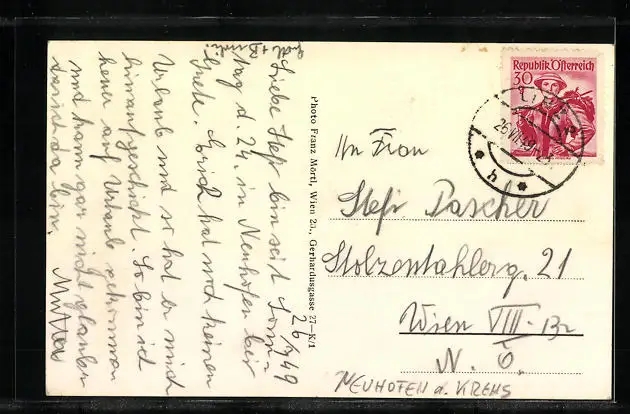 26/7 49
Liebe Stefi bin seit Sonn-
tag d. 24. in Neuhofen bei
Gretl. Erich hat noch keinen
Urlaub und so hat er mich
hinaufgeschickt. So bin ich
heuer auf Urlaub gekommen
und kann gar nicht glauben
dass ich da bin. Mutter
Photo Franz Mörtl, Wien 25., Gerhardusgasse 27—K/1
Republik Österreich
30
26.VII.49
h
An Frau
Stefi Pascher
Stolzenthalerg. 21
Wien VIII.
N. Ö.
NEUHOFEN a. KREMS